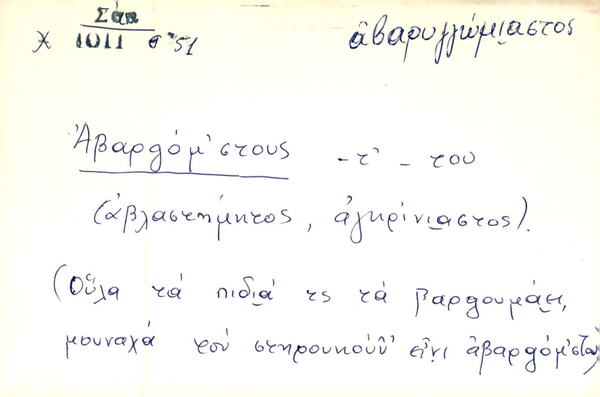 Σάμ
χ 1011 σ 51
ἀβαρυγγώμιαστος
Ἀβαρθόμ'στους -τ' - του
(ἀβλαστήμητος, ἀγκρίνιαστος).
(Οὕλα τά πιδιά τς τά βαρθουμάει,
μουναχά τού στηρουκούν' εἶνι ἀβαρθόμ'στου